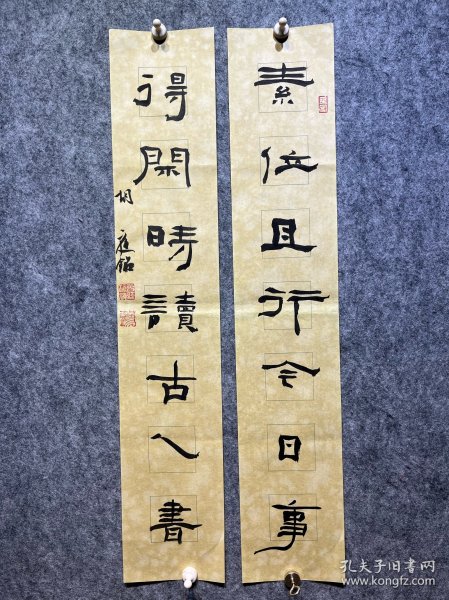 素位且行今日事
得閑時讀古人書
胡
孔夫子旧书网
www.kongfz.com